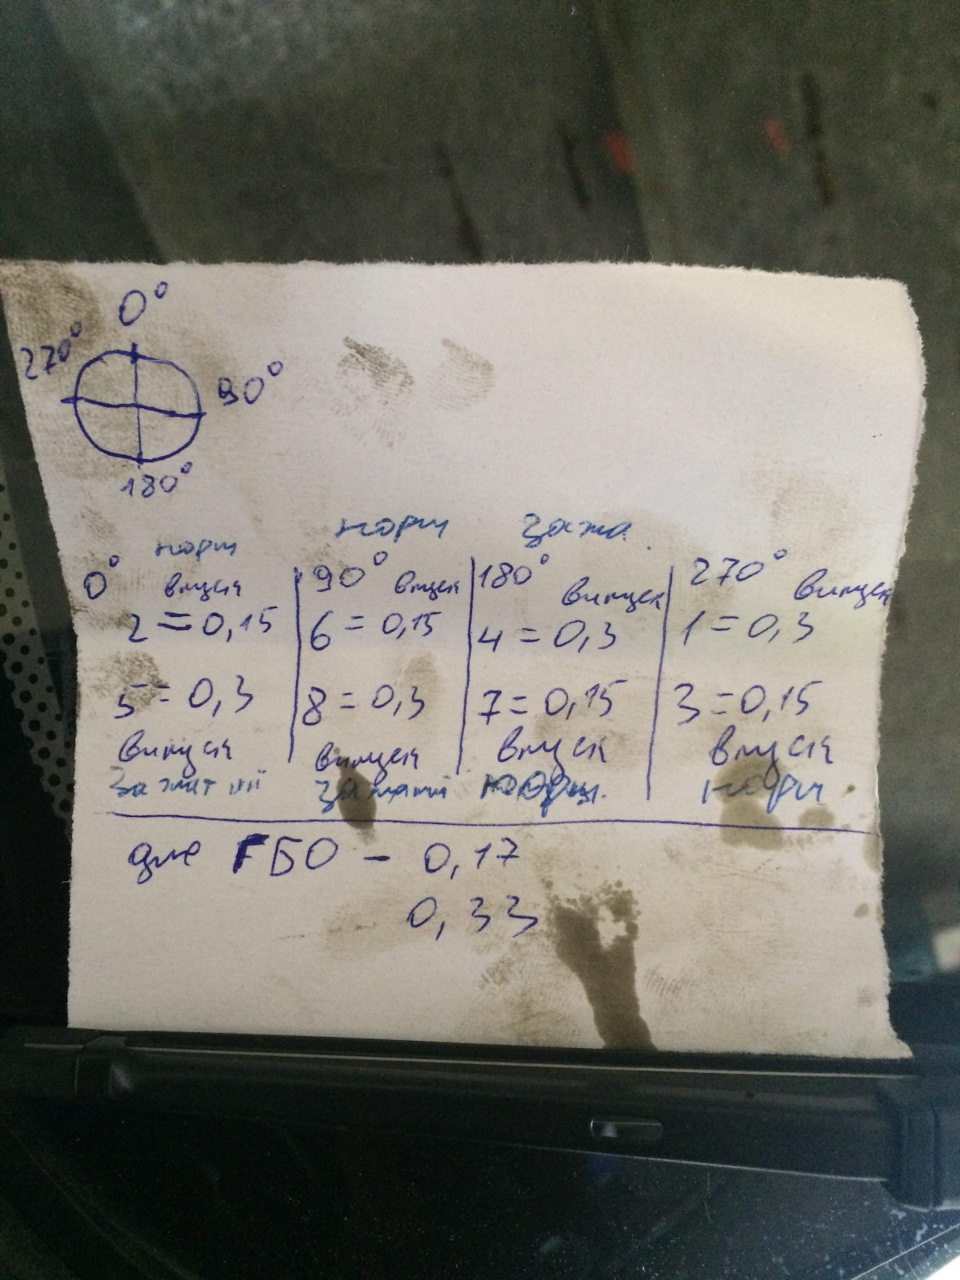 0°
270°
90°
180°
норм норм зажа.
0° впуск 90° впуск 180° випуск 270° випуск
2 = 0,15 6 = 0,15 4 = 0,3 1 = 0,3
5 = 0,3 8 = 0,3 7 = 0,15 3 = 0,15
випуск випуск впуск впуск
зажатий зажатий норм. норм
для ГБО - 0,17
0,33